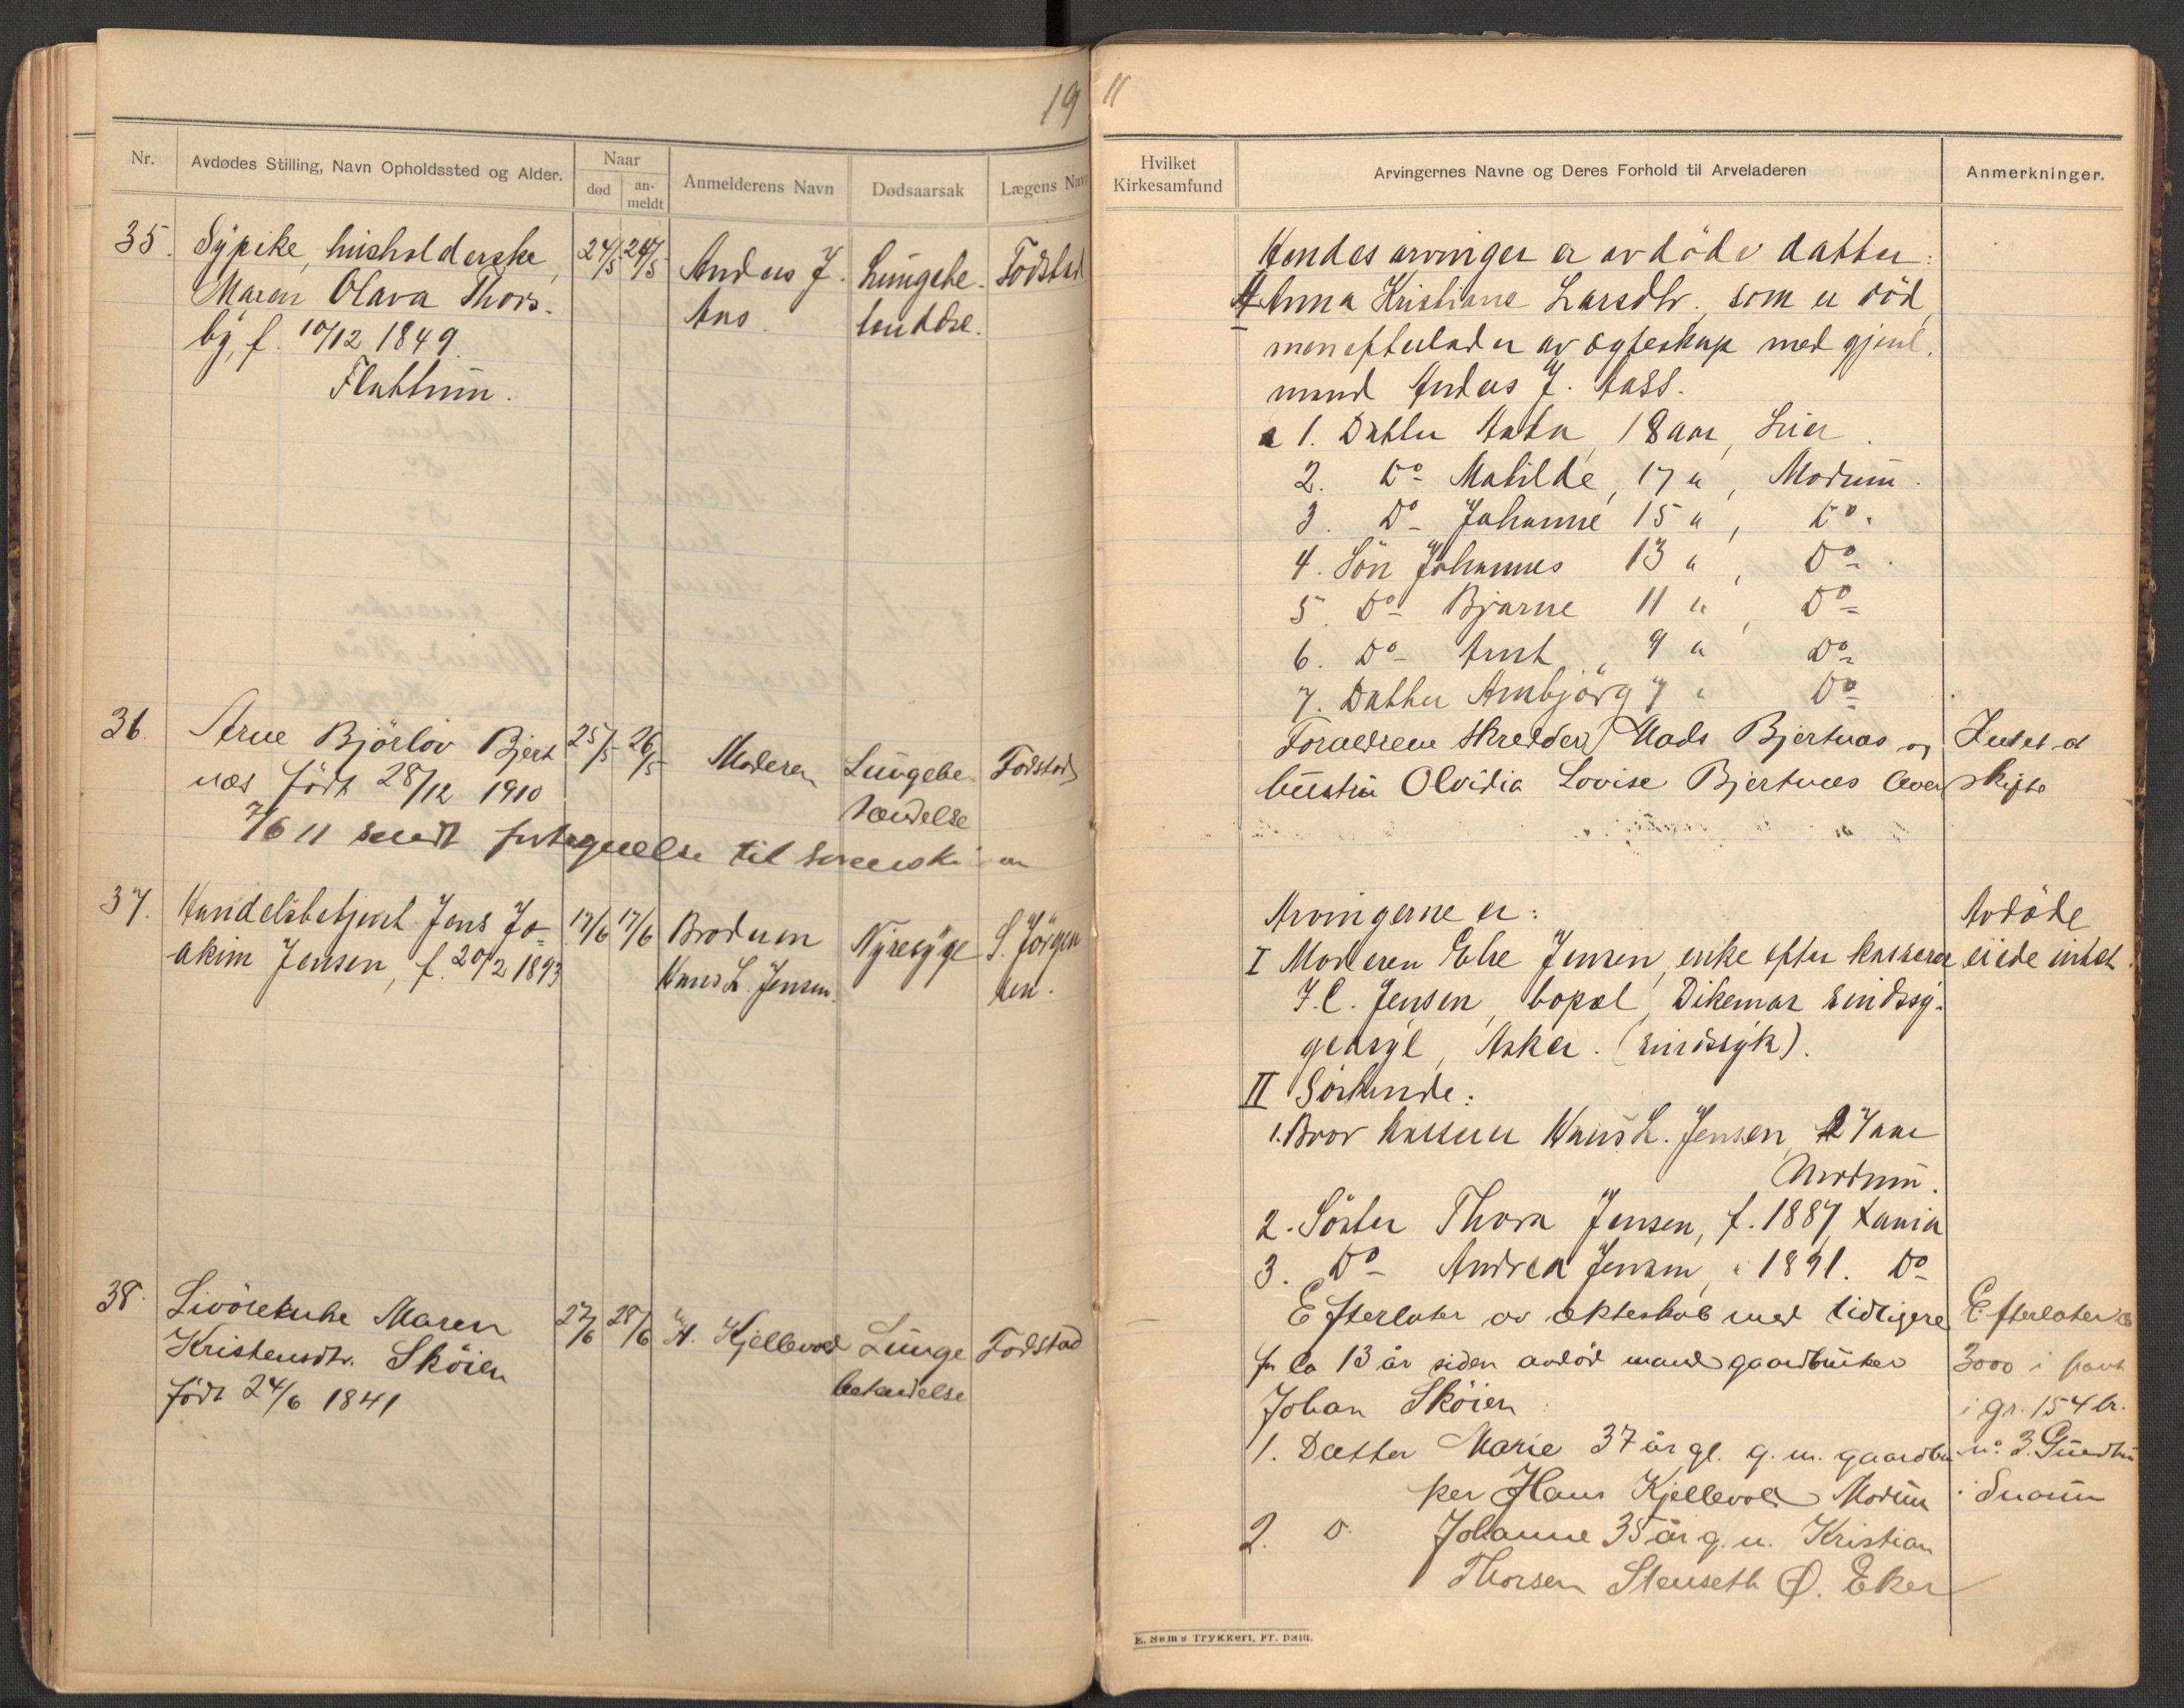 19
11
Nr.
Avdødes Stilling, Navn Opholdssted og Alder.
Naar
død
an-
meldt
Anmelderens Navn
Dødsaarsak
Lægens Navn
Hvilket
Kirkesamfund
Arvingernes Navne og Deres Forhold til Arveladeren
Anmerkninger.
35. Sypike, husholderske 24/5 24/5 Anders J. Lungebe- Fodstad
Maren Olava Thors- Aas. tændelse.
by, f. 10/12 1849.
Flattum.
Hendes arvinger er avdøde datter:
Anna Kristiane Larsdtr. som er død,
men efterlader av egteskap med gjenl.
mand Anders J. Aass.
1. Datter Aasta, 18 aar, Lier.
2. Do Matilde, 17 ", Modum.
3. Do Johanne 15 ", Do.
4. Søn Johannes 13 ", Do.
5. Do Bjarne 11 ", Do
6. Do Arnt, 9 " Do
7. Datter Arnbjørg 7 " Do
36. Arne Bjørlov Bjert 25/5 26/5 Moderen Lungebe- Fodstad
næs født 28/12 1910 tændelse
7/6 11 sendt fortegnelse til
Forældrene Skredder Mads Bjertnæs og Intet at
hustru Olvidia Lovise Bjertnæs skifte
37. Handelsbetjent Jens Jo- 17/6 17/6 Broderen Nyresyge S. Jörgen
akim Jensen, f. 20/2 1893 Hans L. Jensen. sen.
Arvingerne er: Avdøde
I Moderen Else Jensen, enke efter kasserer eiede intet.
J. C. Jensen, bopæl, Dikemar sindssy-
geasyl, Asker. (sindssyk).
II Søskende:
1. Bror kasserer Hans L. Jensen, 27 aar
Modum.
2. Søster Thora Jensen, f. 1887, Xania
3. Do Andrea Jensen, " 1891. Do
38. Livörekuhe Maren 27/6 28/6 H. Kjellevold Lunge Fodstad
Kristensdtr. Skøien betændelse
født 24/6 1841
Efterlater av ekteskab med tidligere Efterlater ca
for ca 13 år siden avdød mand gaardbruker 3000 i
Johan Skøien i gr. 154 br.
1. Datter Marie 37 år gl. g. m. gaardbru no 3.
ker Hans Kjellevold Modum i Snarum
2. D. Johanne 35 år g. m. Kristian
Thorsen Stenseth Ø. Eker
E. Sem's Trykkeri, Fr. hald.